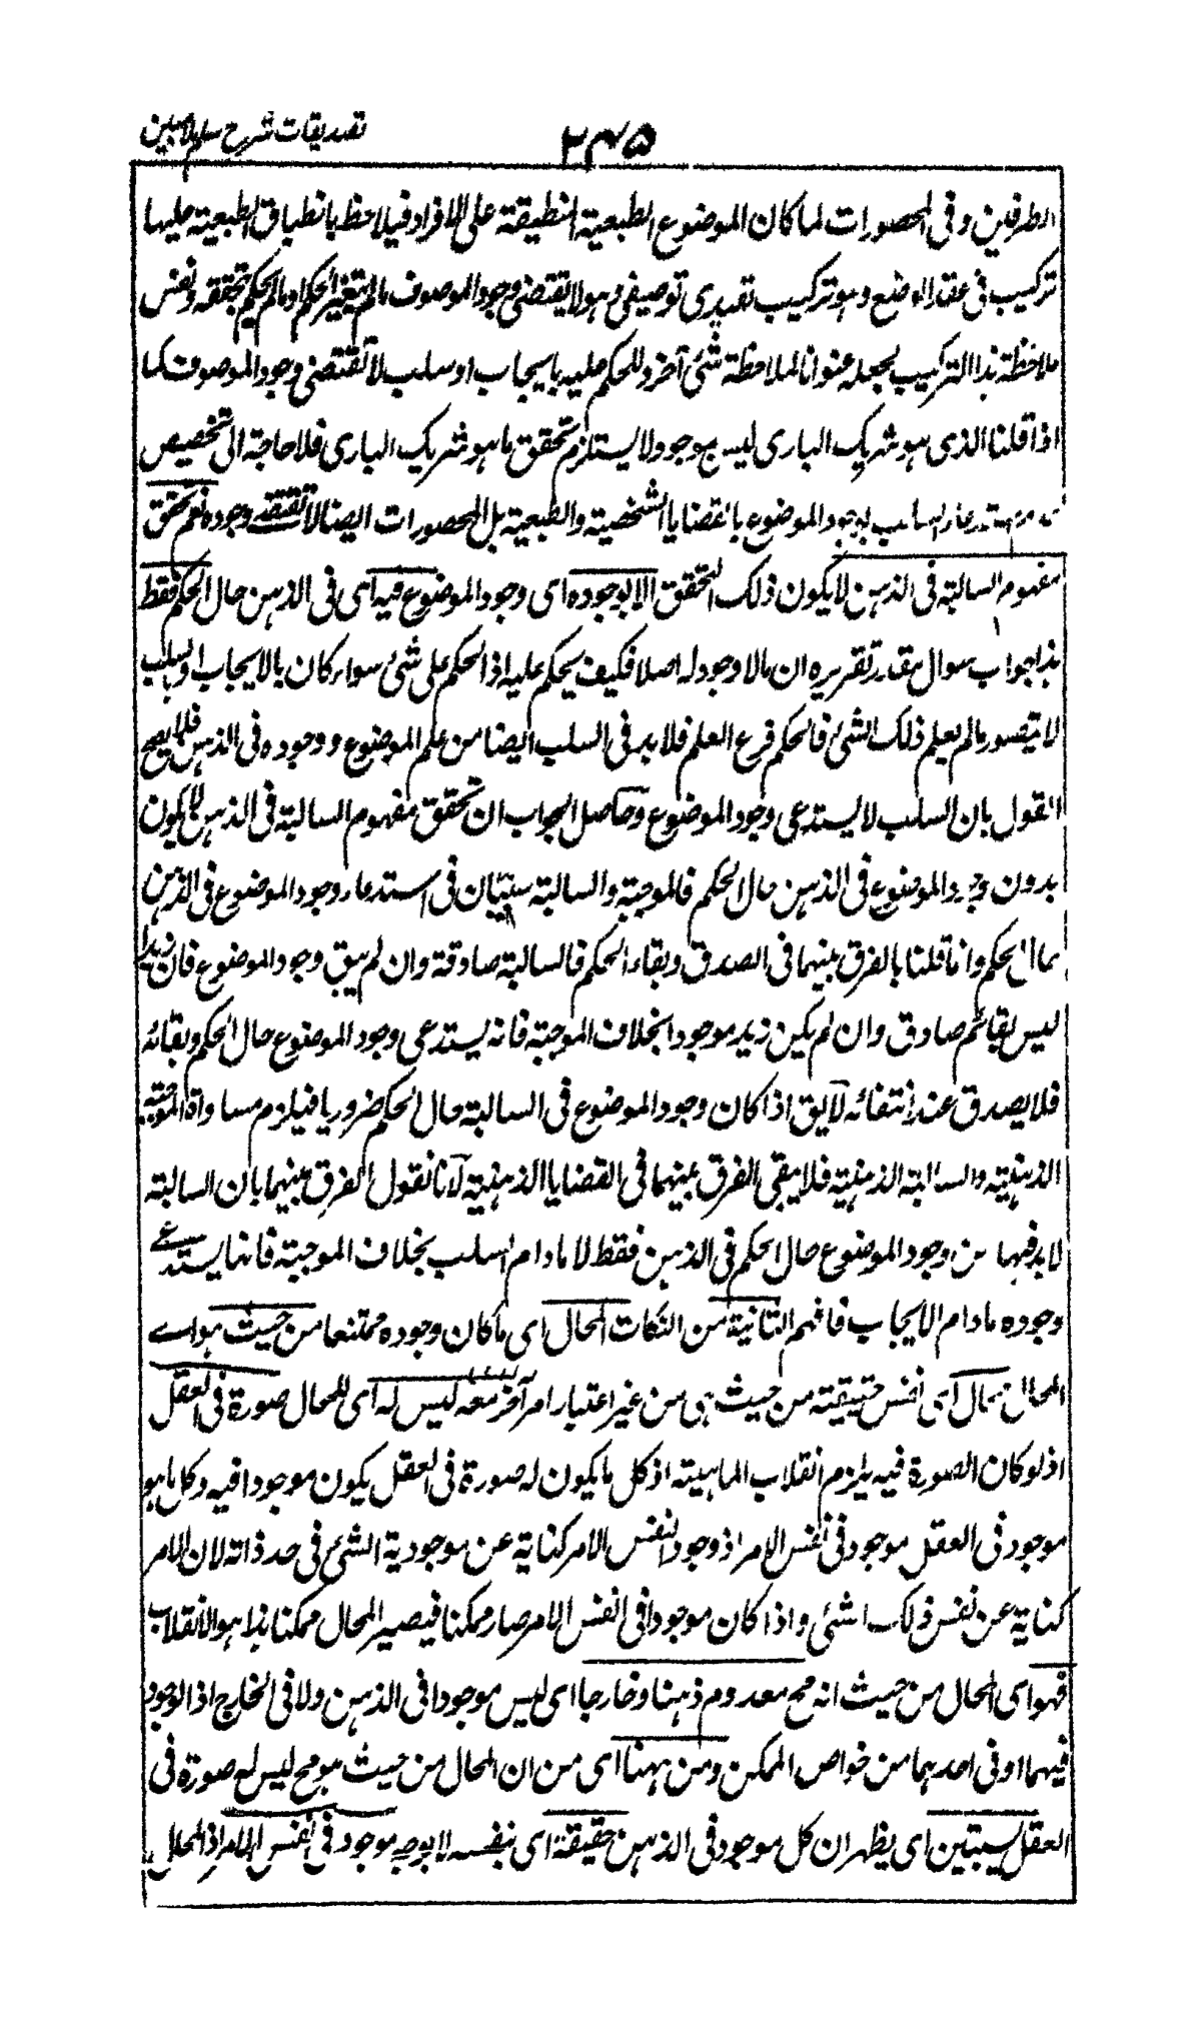 تصديقات شرح سلم ملا مبين
٢٣٥
الطرفين وفى المحصورات لما كان الموضوع الطبعية المنطبقة على الافراد فيلاحظ بانطباق الطبعية عليها
تركيب فى عقد الوضع وهو تركيب تقييدى توصيفى وهو لا يقتضى وجود الموصوف مالم يتغير الحكم ومالم يحكم بتحققه ونفس
ملاحظة هذا التركيب بجعله عنوانا لملاحظة شئ آخر وللحكم عليه بايجاب او سلب لا تقتضى وجود الموصوف كما
اذا قلنا الذى هو شريك البارى ليس بموجود لا يستلزم تحقق ما هو شريك البارى فلا حاجة الى تخصيص
عدم استدعاء السلب لوجود الموضوع بالقضايا الشخصية والطبعية بل المحصورات ايضا لا تقتضيه وجوده نعم تحقق
مفهوم السالبة فى الذهن لا يكون ذلك التحقق الا بوجوده اى وجود الموضوع فيه اى فى الذهن حال الحكم فقط
هذا جواب سوال مقدر تقريره ان مالا وجود له اصلا فكيف يحكم عليه اذ الحكم على شئ سواء كان بالايجاب او بالسلب
لا يتصور مالم يعلم ذلك الشئ فالحكم فرع العلم فلا بد فى السلب ايضا من علم الموضوع ووجوده فى الذهن فلا يصح
القول بان السلب لا يستدعى وجود الموضوع وحاصل الجواب ان تحقق مفهوم السالبة فى الذهن لا يكون
بدون وجود الموضوع فى الذهن حال الحكم فالموجبة والسالبة سيتان فى استدعاء وجود الموضوع فى الذهن
حال الحكم وانما قلنا بالفرق بينهما فى الصدق وبقاء الحكم فالسالبة صادقة وان لم يبق وجود الموضوع فان زيدا
ليس بقائم صادق وان لم يكن زيد موجودا بخلاف الموجبة فانه يستدعى وجود الموضوع حال الحكم وبقائه
فلا يصدق عند انتفائه لا يق اذا كان وجود الموضوع فى السالبة حال الحكم ضروريا فيلزم مساواة الموجبة
الذهنية والسالبة الذهنية فلا يبقى الفرق بينهما فى القضايا الذهنية لانا نقول الفرق بينهما بان السالبة
لا بد فيها من وجود الموضوع حال الحكم فى الذهن فقط لا مادام السلب بخلاف الموجبة فانها يستدعے
وجوده مادام الايجاب فافهم الثانية من النكات المحال اى ما كان وجوده ممتنعا من حيث هو اے
المحال محال اى نفس حقيقته من حيث هى من غير اعتبار امر آخر معه ليس له اى للمحال صورة فى العقل
اذ لو كان الصورة فيه يلزم انقلاب الماهية اذ كل ما يكون له صورة فى العقل يكون موجودا فيه وكل ما هو
موجود فى العقل موجود فى نفس الامر اذ وجود النفس الامر كناية عن موجودية الشئ فى حد ذاته لان الامر
كناية عن نفس ذلك الشئ واذا كان موجودا فى النفس الامر صار ممكنا فيصير المحال ممكنا هذا هو الانقلاب
فهو اى المحال من حيث انه مح معدوم ذهنا وخارجا اى ليس موجودا فى الذهن ولا فى الخارج اذ الوجود
فيهما او فى احدهما من خواص الممكن ومن ههنا اى من ان المحال من حيث هو مح ليس له صورة فى
العقل يستبين اى يظهر ان كل موجود فى الذهن حقيقة اى بنفسه لا بوجه موجود فى نفس الامر اذ المحال